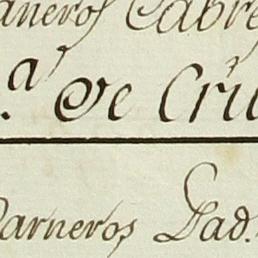 aneros Cabre
.a de Criu
Carneros Pad.